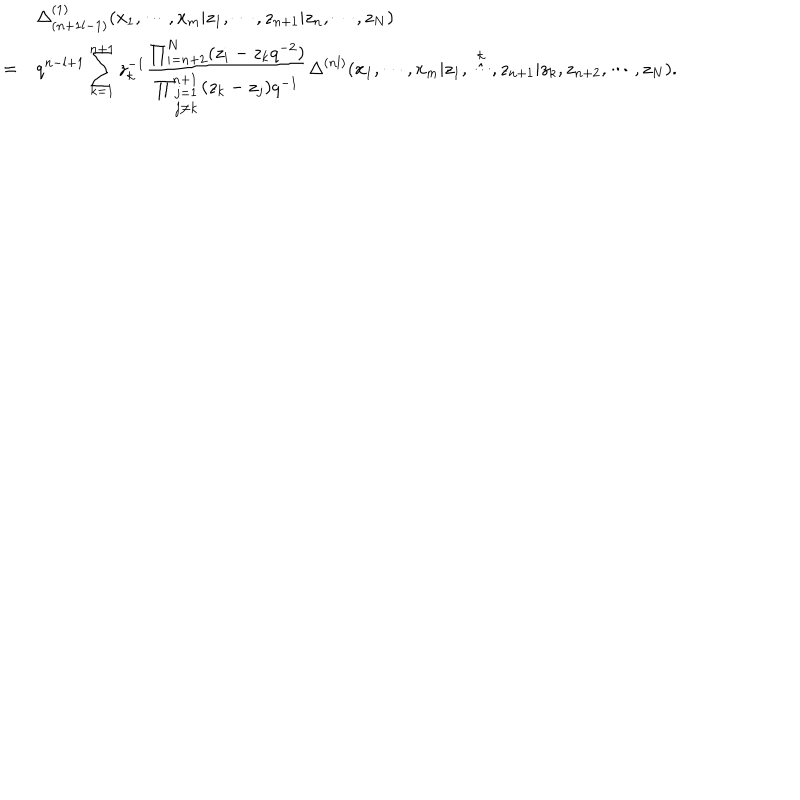 \Delta^{(1)}_{(n+1l-1)}(x_1, \cdots, x_m | z_1, \cdots, z_{n+1} | z_n, \cdots, z_N)
= q^{n-l+1} \sum_{k=1}^{n+1} z_k^{-1} \frac{\prod_{i=n+2}^{N} (z_i - z_k q^{-2})}{\prod_{\substack{j=1 \\ j \neq k}}^{n+1} (z_k - z_j) q^{-1}} \Delta^{(nl)}(x_1, \cdots, x_m | z_1, \overset{\overset{k}{\wedge}}{\cdots}, z_{n+1} | z_k, z_{n+2}, \cdots, z_N).